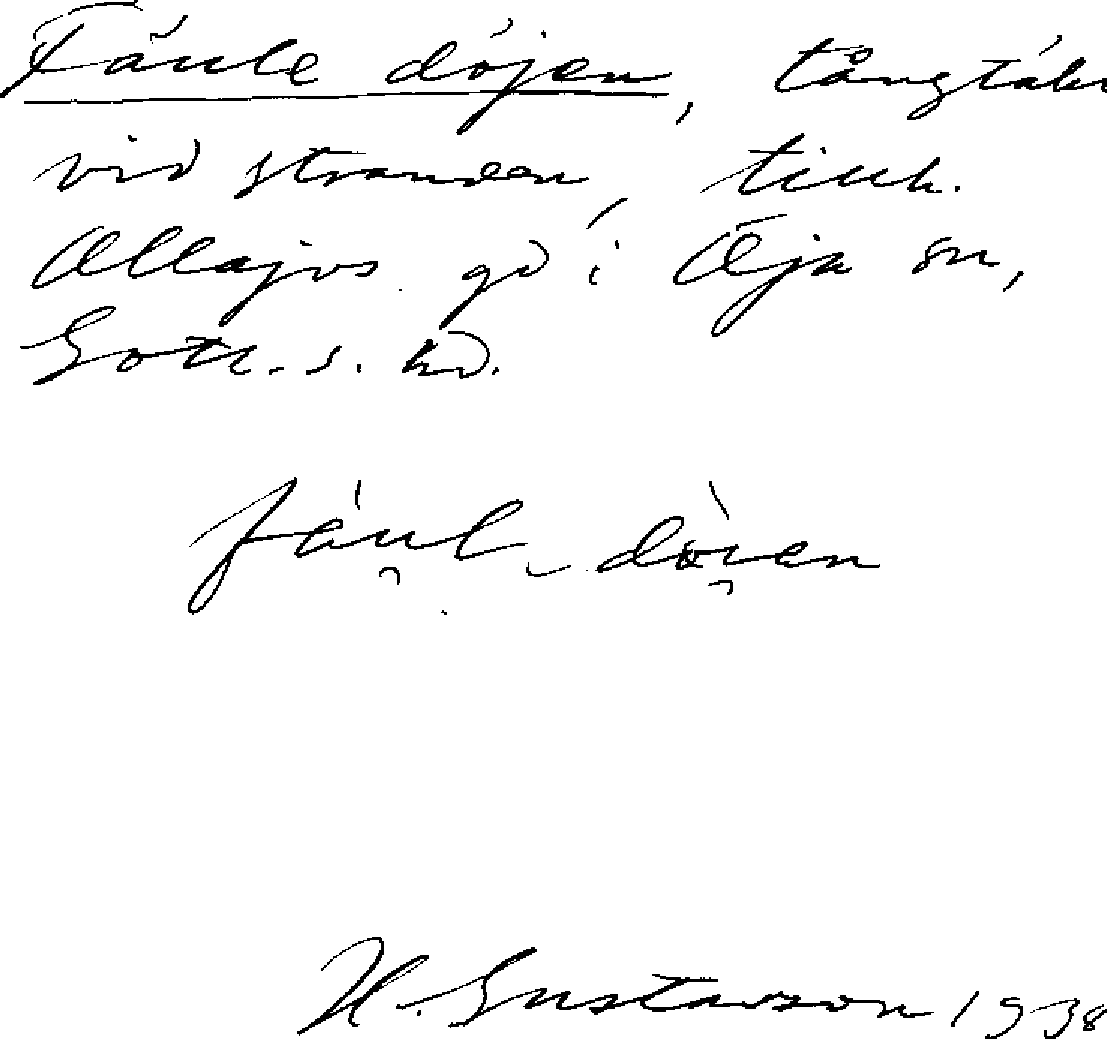 Fäule döjen, tångtäkt
vid stranden, tillh.
Ollajvs gd i Öja sn,
Gotl. s. hd.
fául döien
H. Gustavson 1938